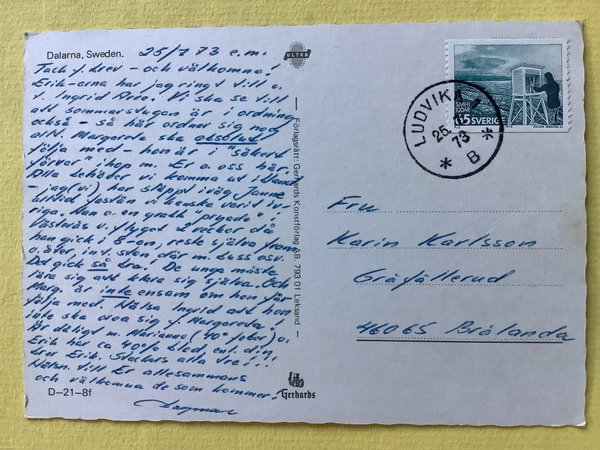 Dalarna, Sweden.
25/7 73 e.m.
Tack f. brev – och välkomna!
Erik-erna har jag ringt till o.
Ingrid Ado. Vi ska se till
att sommarstugan är i ordning
också – så här ordnar sig nog
allt. Margareta ska absolut
följa med – hon är i "säkert
förvar" ihop m. Er o. oss här.
Alla behöver vi komma ut ibland
– jag (vi) har släppt iväg Janne
alltid fastän vi kanske varit
riga. Han o. en gratk "pryade" i
Västerås v. flyget 2 veckor då
han gick i 8-an, reste själva fram
o. åter
Det gick så bra! De unga måste
lära sig att klara sig själva. Och
Marg. är inte ensam om hon får
följa med. Hälsa Ingrid att hon
inte ska oroa sig f. Margareta!
Är dåligt m. Marianne (40° feber) o.
Erik har ca 40% blod, enl. din
bror Erik. Stackars alla tre!!
Hälsn. till Er allesammans
och välkomna de som kommer!
Dagmar
D–21–8f
ULTRA
— Förlagsrätt: Gerhards Konstförlag AB. 793 01 Leksand —
Gerhards
LUDVIKA 1
25. 7.
73
* B *
SMHI
100 ÅR
65 SVERIGE
Fru
Karin Karlsson
Gräfällerud
46065 Brålanda